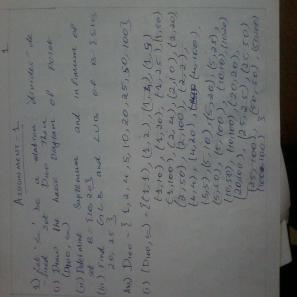 1
Assignment - 1
1) Let '≤' be a relation 'divides' de
fined set D100 . Then
i) Draw the hasse diagram of poset
(D100, ≤)
(ii) Determine supremum and infimum of
set B = {10, 20}
(iii) Find G.L.B and L.U.B of B = {5, 10,
20, 25}
D100 = { 1, 2, 4, 5, 10, 20, 25, 50, 100}
(i) (D100, ≤) = { (1,1), (1,2), (1,4), (1,5)
(1,10), (1,20), (1,25), (1,50)
(1,100), (2,2), (2,4), (2,10), (2,20)
(2,50), (2,100)
(4,4), (4,20), (4,100),
(5,5), (5,10), (5,20), (5,25),
(5,50), (5,100), (10,10), (10,20)
(10,50), (10,100), (20,20)
(20,100), (25,25), (25,50)
(25,100), (50,50), (50,100)
(100,100) }